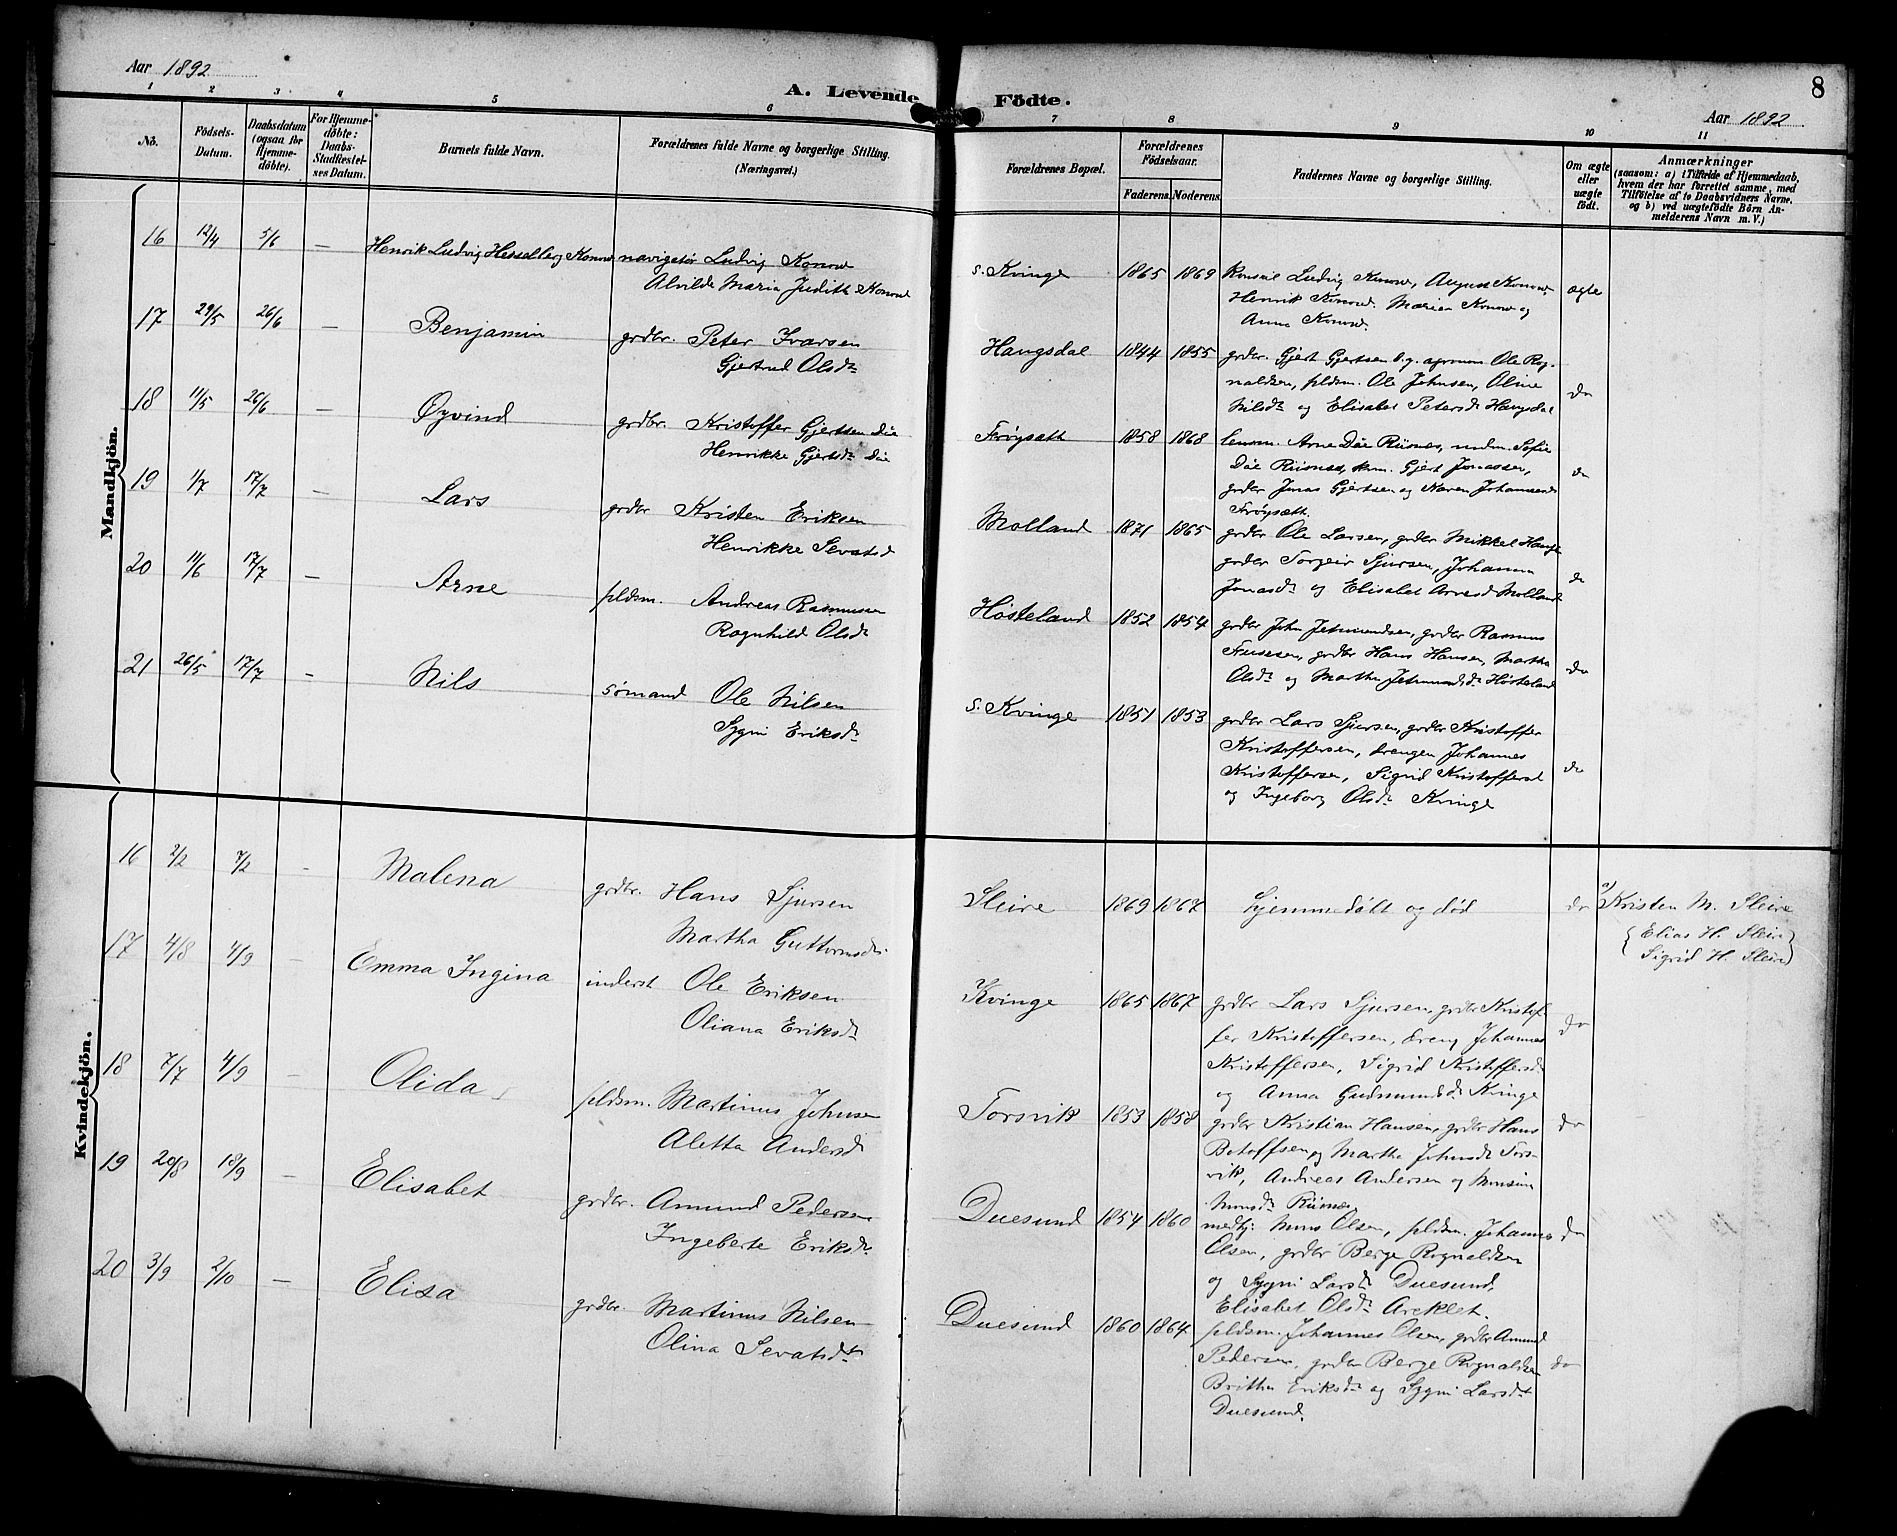 Aar 1892
A. Levende Födte.
8
Aar 1892
1 2 3 4 5 6 7 8 9 10 11
No.
Födsels-Datum.
Daabsdatum (ogsaa for Hjemme-döbte).
For Hjemme-döbte: Daabs-Stadfæstel-ses Datum.
Barnets fulde Navn.
Forældrenes fulde Navne og borgerlige Stilling. (Næringsvei.)
Forældrenes Bopæl.
Forældrenes Födselsaar.
Faderens. Moderens.
Faddernes Navne og borgerlige Stilling.
Om ægte eller uægte födt.
Anmærkninger
(saasom: a) i Tilfælde af Hjemmedaab,
hvem der har forrettet samme, med
Tilföielse af to Daabsvidners Navne,
og b) ved uægtefödte Börn An-
melderens Navn m. V.)
Mandkjön.
16 12/4 5/6 — Henrik Ludvig Hesselberg Konow navigatør Ludvig Konow
Alvilde Maria Judith Konow
s. Kvinge 1865 1869 Konsul Ludvig Konow, August Konow,
Henrik Konow. Marien Konow og
Anna Konow.
ægte
17 29/5 26/6 — Benjamin grdbr. Peter Ivarsen
Gjertrud Olsdr
Haugsdal 1844 1855 grdbr. Gjert Gjertsen b.g. agronom Ole Rog-
naldsen, pldsm. Ole Johnsen, Oline
Nilsdr og Elisabet Petersdr Haugsdal
do
18 11/5 26/6 — Øyvind grdbr. Kristoffer Gjertsen Däe
Henrikke Gjertsdr Däe
Frøysætt 1858 1868 lensm. Arne Däe Risnes, Sofie
Däe Risnes, Gjert Jonassen,
grdbr Jonas Gjertsen og Karen Johannesdr
Frøysætt.
do
19 1/7 17/7 — Lars grdbr Kristen Eriksen
Henrikke Sevatsd
Molland 1871 1865 grdbr Ole Larsen, grdbr Mikkel Hansen
grdbr Torgeir Sjursen, Johanna
Jonasdr og Elisabet Arnesd Molland
do
20 11/6 17/7 — Arne pldsm. Andreas Rasmussen
Ragnhild Olsdr
Høsteland 1852 1854 grdbr John Jetmundsen, grdbr Rasmus
grdbr Hans Hansen, Martha
Olsdr og Martha Jetmundsdr Høsteland
do
21 26/5 17/7 — Nils sømand Ole Nilsen
Sygni Eriksdr
s. Kvinge 1851 1853 grdbr Lars Sjursen, grdbr Kristoffer
Kristoffersen, drengen Johannes
Kristoffersen, Sigrid Kristoffersd
og Ingeborg Olsdr Kvinge
do
Kvindekjön.
16 2/2 7/2 - Malena grdbr. Hans Sjursen
Martha Guttormsdr
Sleire 1869 1867 hjemmedøbt og død do a) Kristen M. Sleire
(Elias H. Sleire)
(Sigrid H. Sleire)
17 4/8 4/9 — Emma Ingina inderst Ole Eriksen
Oliana Eriksdr
Kvinge 1865 1867 grdbr Lars Sjursen, grdbr Kristof-
fer Kristoffersen, dreng Johannes
Kristoffersen, Sigrid Kristoffersdr
og Anna Gudmundsdr Kvinge
do
18 7/7 4/9 — Olida pldsm. Martinus Johnsen
Aletta Andersd
Torsvik 1853 1858 grdbr Kristian Hansen, grdbr Hans
Botolfsen og Martha Johnsdr Tors-
vik, Andreas Andersen og Monsine
Monsdr Risnes
do
19 20/8 18/9 — Elisabet grdbr. Amund Pedersen
Ingeberte Eriksdr
Duesund 1854 1860 medhj. Mons Olsen, pldsm. Johannes
Olsen, grdbr Berge Rognaldsen
og Sygni Larsdr Duesund,
Elisabet Olsdr Areklet.
do
20 3/9 2/10 — Elisa grdbr. Martinus Nilsen
Olina Sevatsdr
Duesund 1860 1864 pldsm. Johannes Olsen, grdbr Amund
Pedersen, grdbr Berge Rognaldsen
Britha Eriksdr og Sygni Larsdr
Duesund.
do